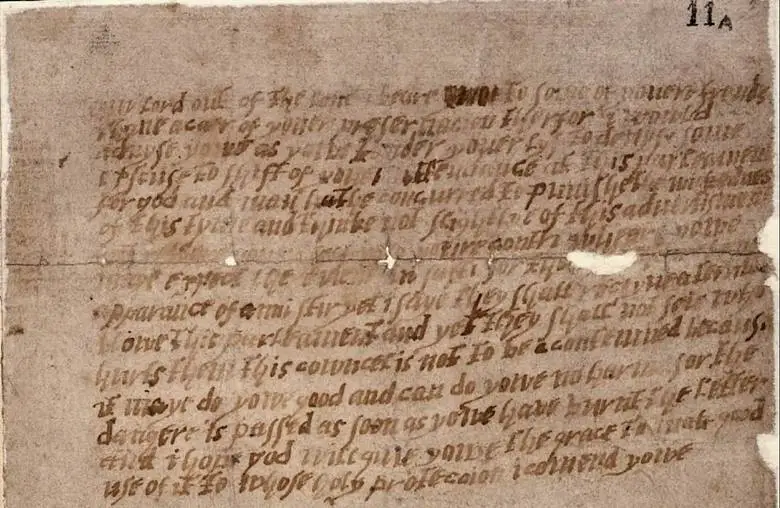 11A
my lord out of the loue i beare to some of youere frends
i haue a caer of youer preseruacion therfor i would
aduyse yowe as yowe tender youer lyf to deuyse some
excuse to shift of youer attendance at this parleament
for god and man hathe concurred to punishe the wickednes
of this tyme and thinke not slightlye of this aduertisment
contri wheare yowe
maye expect the euent in safti for
apparance of anni stir yet i saye they shall receyue a terrible
blowe this parleament and yet they shall not seie who
hurts them this cowncel is not to be acontemned because
it maye do yowe good and can do yowe no harme for the
dangere is passed as soon as yowe have burnt the letter
and i hope god will giue yowe the grace to mak good
use of it to whose holy proteccion i comend yowe